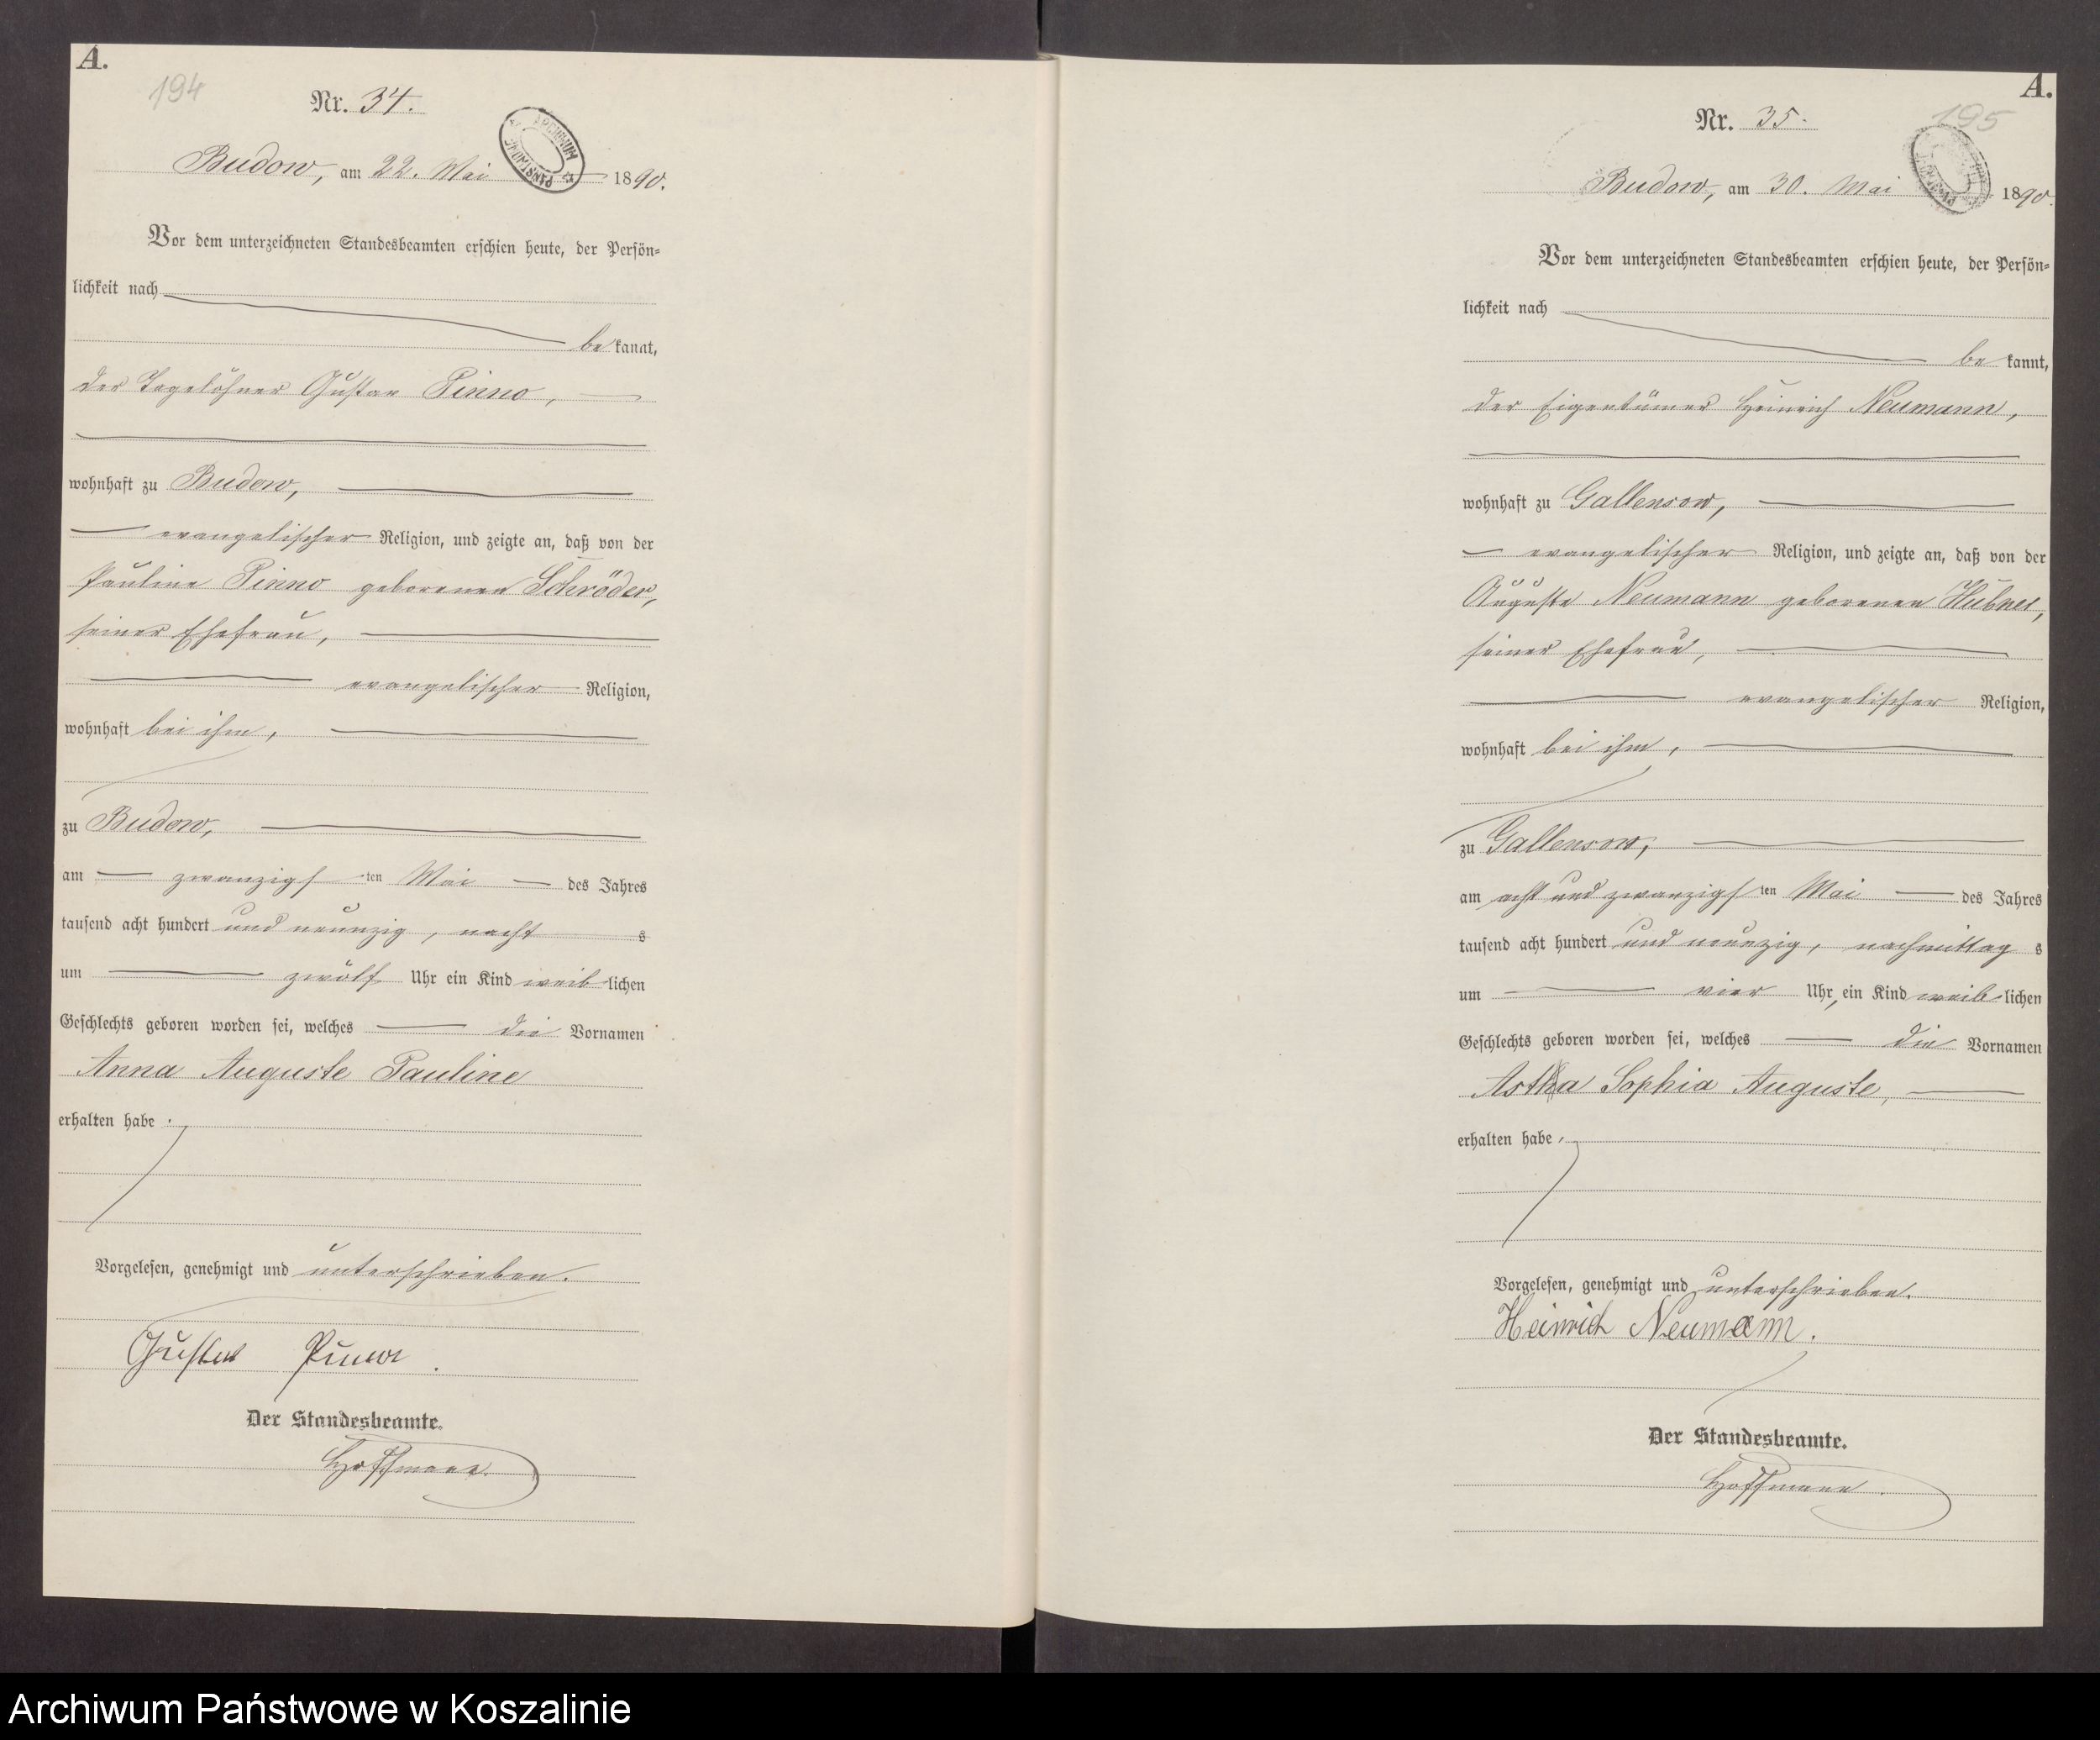 A.
194
Nr. 34.
ARCHIWUM PAŃSTWOWE
Budow, am 22. Mai 1890.
Vor dem unterzeichneten Standesbeamten erschien heute, der Persön-
lichkeit nach
be kannt,
der Tagelöhner Gustav Pinno,
wohnhaft zu Budow,
evangelischer Religion, und zeigte an, daß von der
Pauline Pinno geborenen Schröder,
seiner Ehefrau,
evangelischer Religion,
wohnhaft bei ihm,
zu Budow,
am zwanzigs ten Mai des Jahres
tausend acht hundert und neunzig, nacht s
um zwölf Uhr ein Kind weib lichen
Geschlechts geboren worden sei, welches die Vornamen
Anna Auguste Pauline
erhalten habe.
Vorgelesen, genehmigt und unterschrieben.
Gustav Pinno.
Der Standesbeamte.
Hoffmann.
A.
195
Nr. 35.
Budow, am 30. Mai 1890.
Vor dem unterzeichneten Standesbeamten erschien heute, der Persön-
lichkeit nach
be kannt,
der Eigentümer Heinrich Neumann,
wohnhaft zu Gallensow,
evangelischer Religion, und zeigte an, daß von der
Auguste Neumann geborenen Hübner,
seiner Ehefrau,
evangelischer Religion,
wohnhaft bei ihm,
zu Gallensow,
am acht und zwanzigs ten Mai des Jahres
tausend acht hundert und neunzig, nachmittag s
um vier Uhr, ein Kind weib lichen
Geschlechts geboren worden sei, welches die Vornamen
Sophia Auguste,
erhalten habe.
Vorgelesen, genehmigt und unterschrieben.
Heinrich Neumann.
Der Standesbeamte.
Hoffmann.
Archiwum Państwowe w Koszalinie